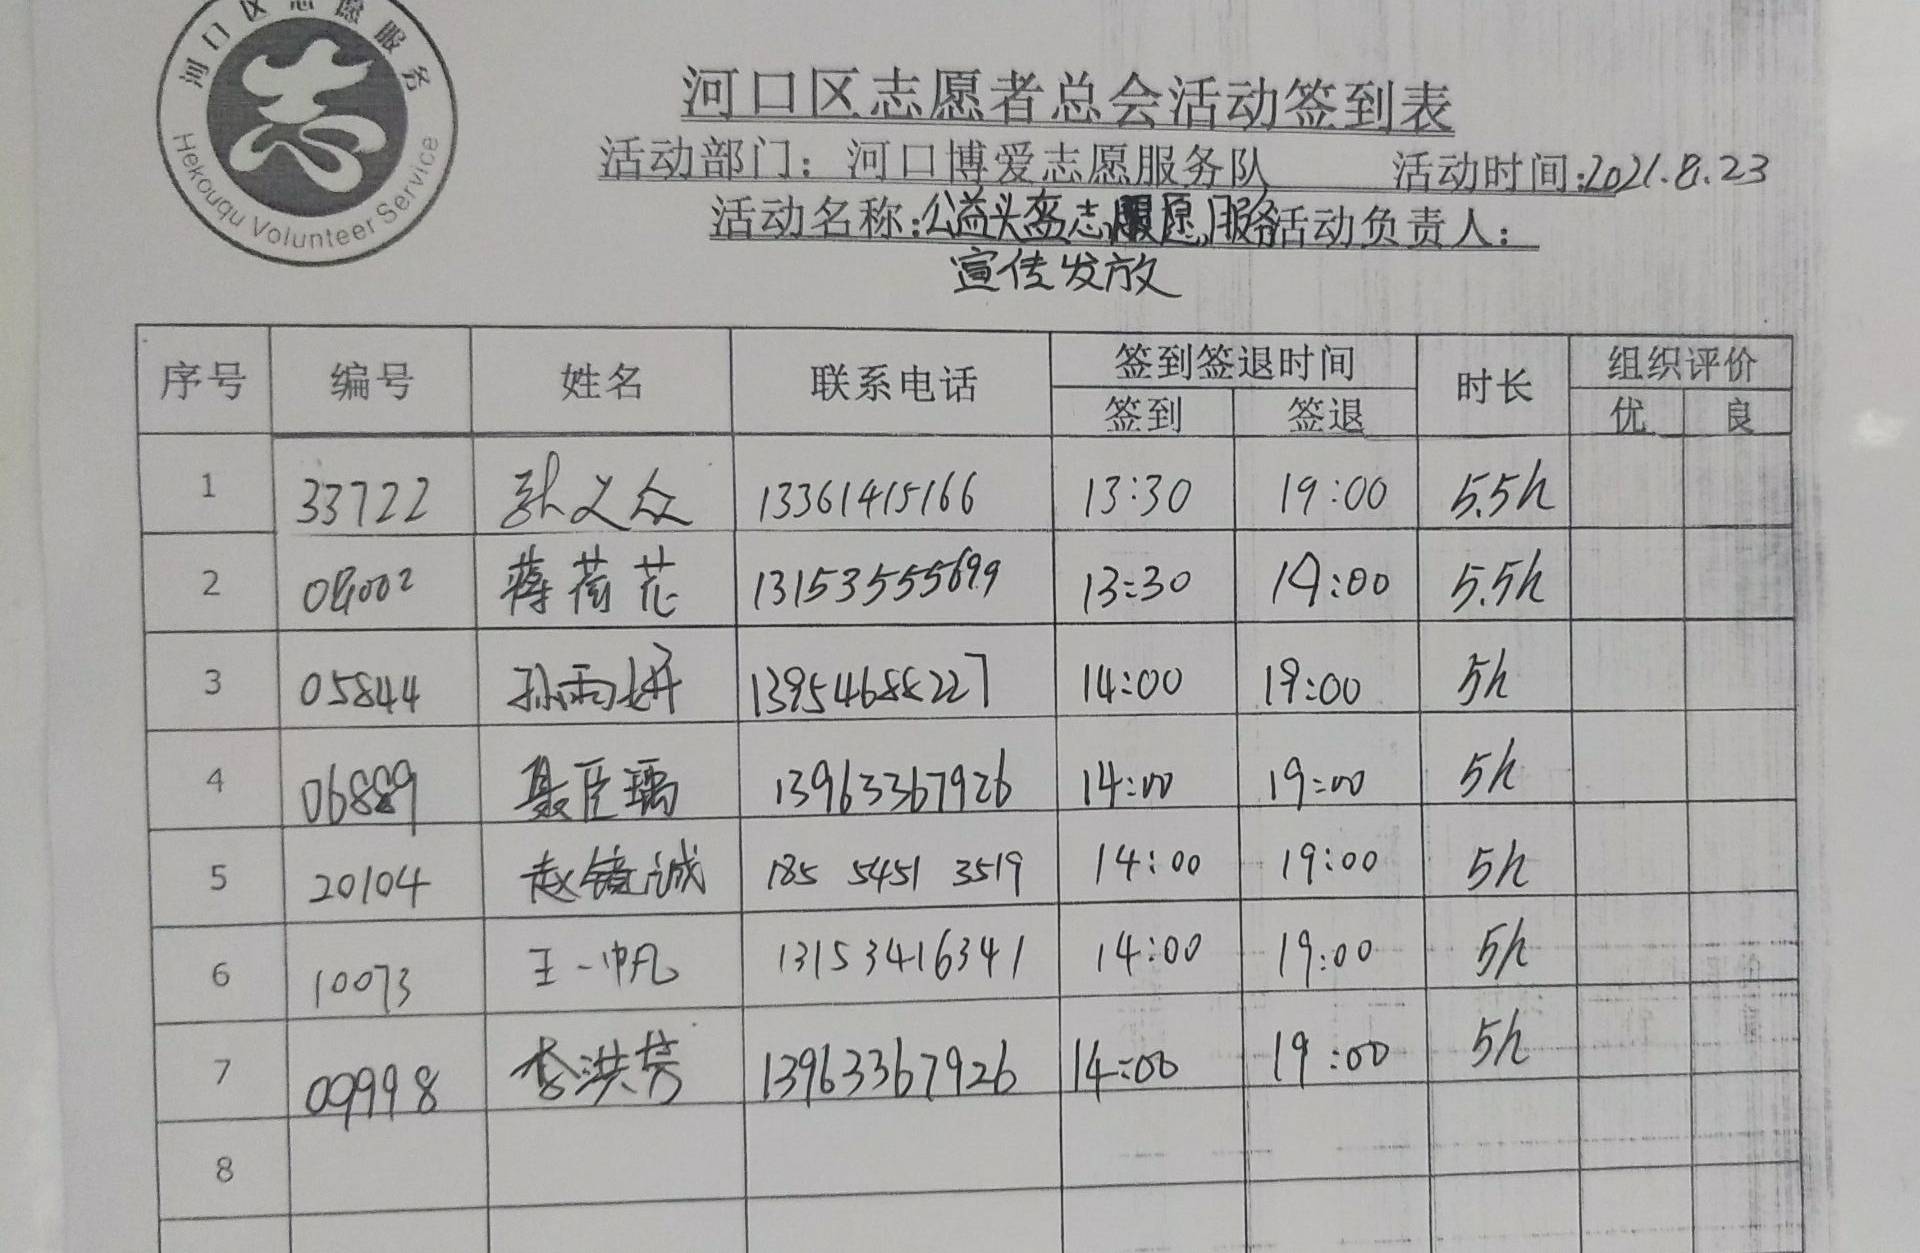 河口区志愿服务
Hekouqu Volunteer Service
河口区志愿者总会活动签到表
活动部门：河口博爱志愿服务队 活动时间:2021.8.23
活动名称:公益头盔志愿服务活动负责人：
宣传发放
序号 编号 姓名 联系电话 签到签退时间 时长 组织评价
签到 签退 优 良
1 33722 张义众 13361415166 13:30 19:00 5.5h
2 09002 蒋荷芯 13153555699 13:30 19:00 5.5h
3 05844 孙雨妍 13954688227 14:00 19:00 5h
4 06889 聂臣瑀 13963367926 14:00 19:00 5h
5 20104 赵镜诚 185 5451 3519 14:00 19:00 5h
6 10073 王一帆 13153416341 14:00 19:00 5h
7 09998 李洪芳 13963367926 14:00 19:00 5h
8